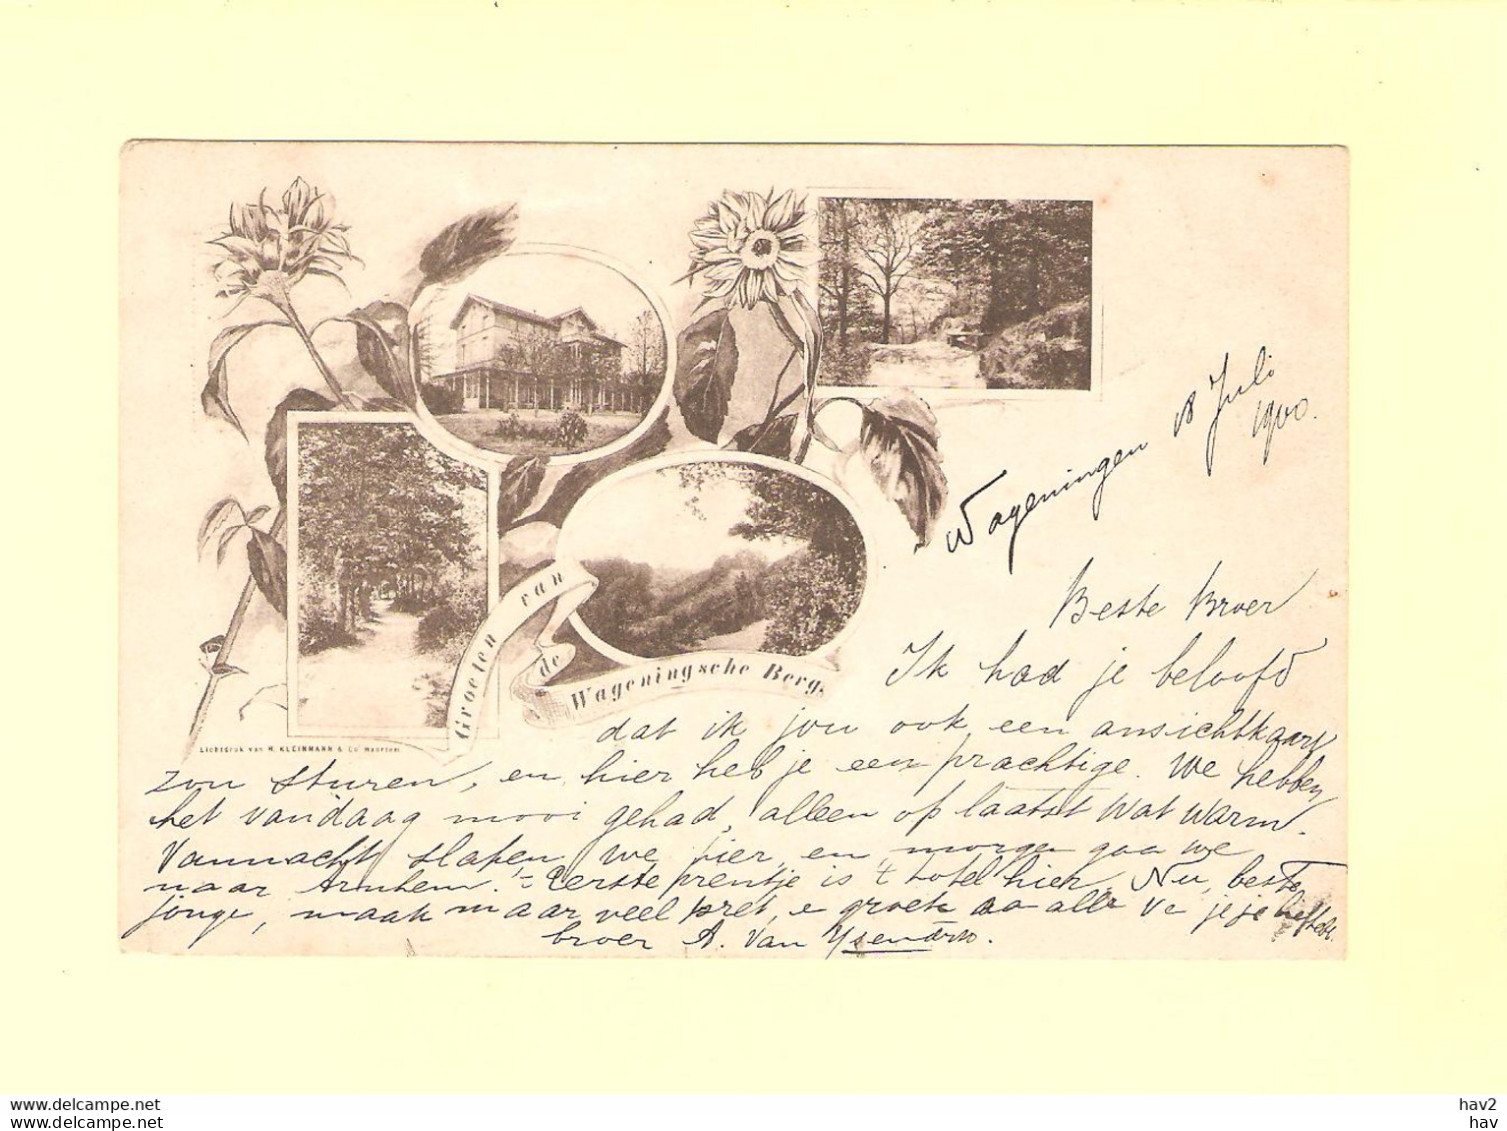 Groeten van
de
Wageningsche Berg.
Lichtdruk van H. KLEINMANN & Co Haarlem
Wageningen 18 Juli
1900.
Beste Broer
Ik had je beloofd
dat ik jou ook een ansichtkaart
zou sturen, en hier heb je een prachtige. We hebben
het vandaag mooi gehad, alleen op laatst wat warm.
Vannacht slapen we hier, en morgen gaa we
naar Arnhem. Eerste prentje is 't hotel hier. Nu, beste
jonge, maak maar veel pret, groet alle je liefhebb.
broer A. van
www.delcampe.net
www.delcampe.net
hav2
hav